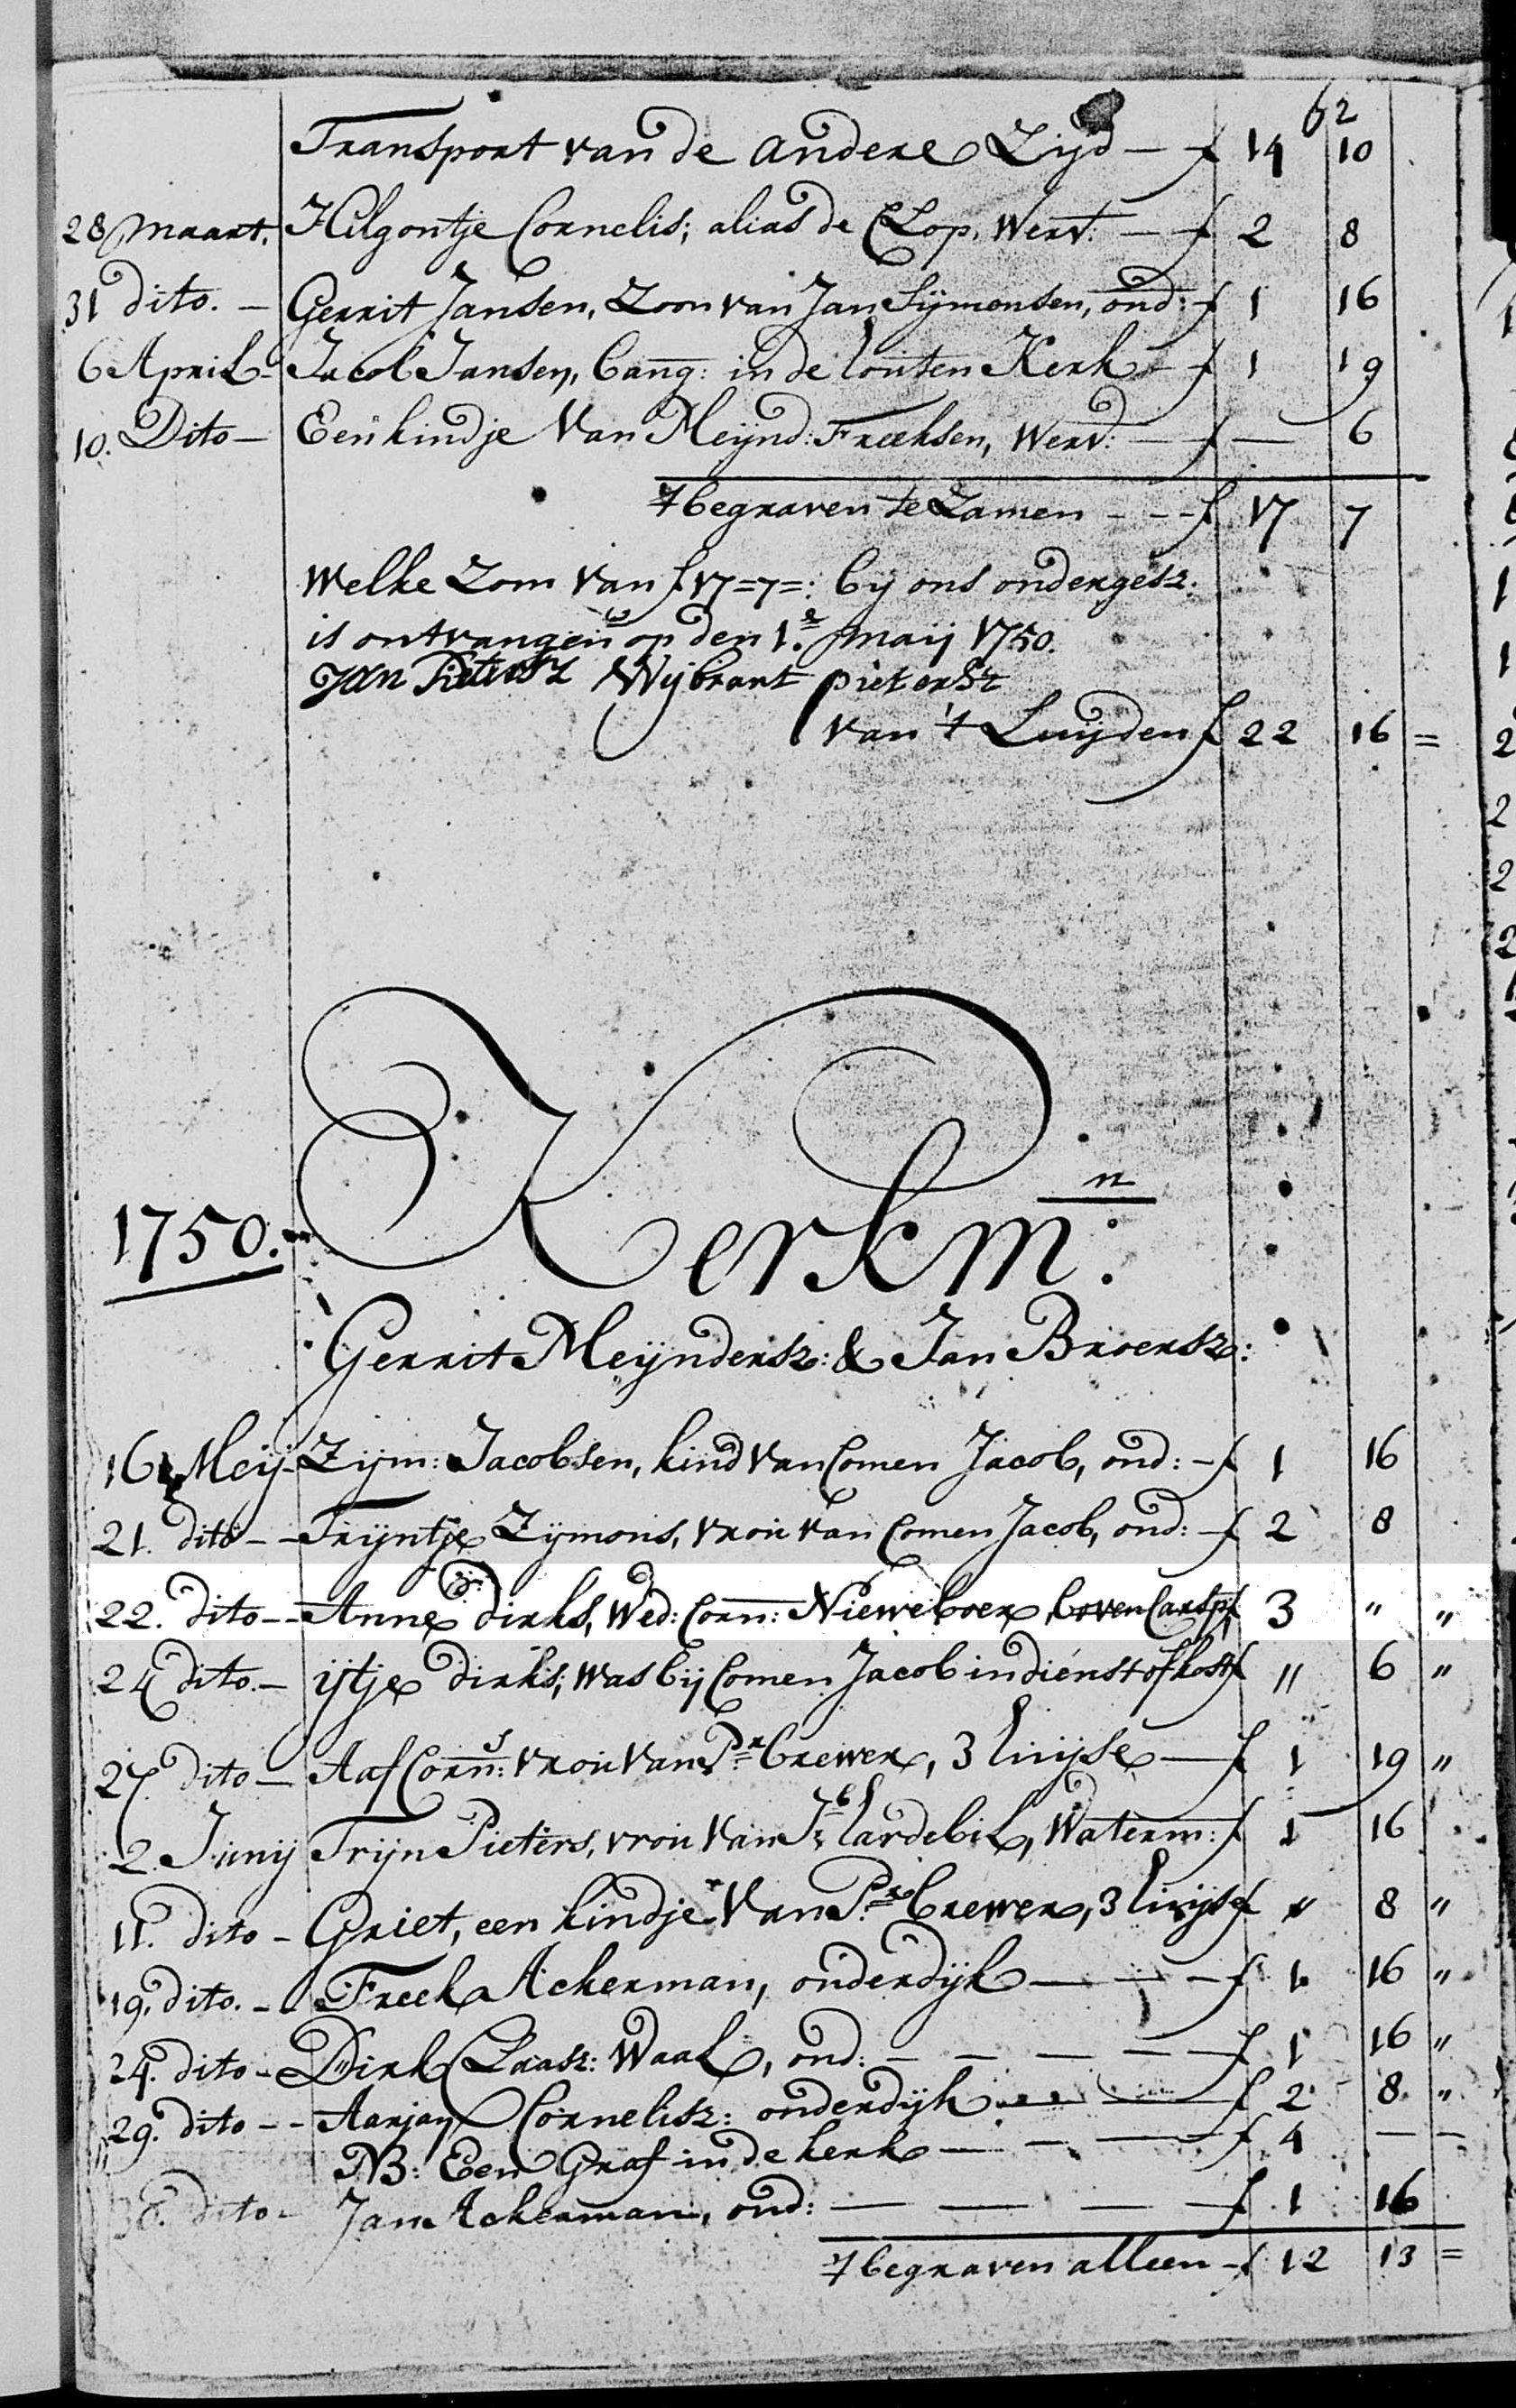 62
Transport van de andere Zijd — f 14 10
28 Maart. Hilgontje Cornelis; alias de Clop, Werv: — f 2 8
31 dito. — Gerrit Jansen, Zoon van Jan Sijmonsen, ond: f 1 16
6 April — Jacob Jansen, bang: in de houten Kerk — f 1 19
10. Dito — Een kindje van Meijnd: Freeksen, Werv: — f — 6
't begraven te Zamen - - - f 17 7
Welke Zom van f 17=7=: bij ons ondergesz:
is ontvangen op den 1.e Maij 1750.
Jan Pietersz Wijbrant pietersz
van 't Luijden f 22 16 =
1750. Kerkm:n
Gerrit Meijndersz: & Jan Broersz:
16 Meij - Zijm: Jacobsen, kind van Comen Jacob, ond: - f 1 16
21. dito - - Trijntje Zijmons, vrou van Comen Jacob, ond: - f 2 8
22. dito - - Anne dirks, Wed: Corn: Nieweboer, boven Carsp: f 3 " "
24 dito. - ijtje dirks; was bij Comen Jacob in dienst of kost f " 6 "
27. dito - Aaf Corn:s vrou van P:r brewer, 3 huijse — f 1 19 "
2. Junij Trijn Pieters, vrou van J:b Cardebil, Waterm: f 1 16
11. dito - Griet, een kindje van P:r brewer, 3 huijse f " 8 "
19. dito. - Freek Ackerman, onderdijk — — - f 1 16 "
24. dito - Dirk Claasz: Waal, ond: - — — — f 1 16 "
29. dito - - Aarjan Cornelisz: onderdijk — — f 2 8 "
NB: Een Graf in de kerk — - — f 4 — —
30. dito - Jan Ackerman, ond: — — — f 1 16
't begraven alleen - f 12 13 =